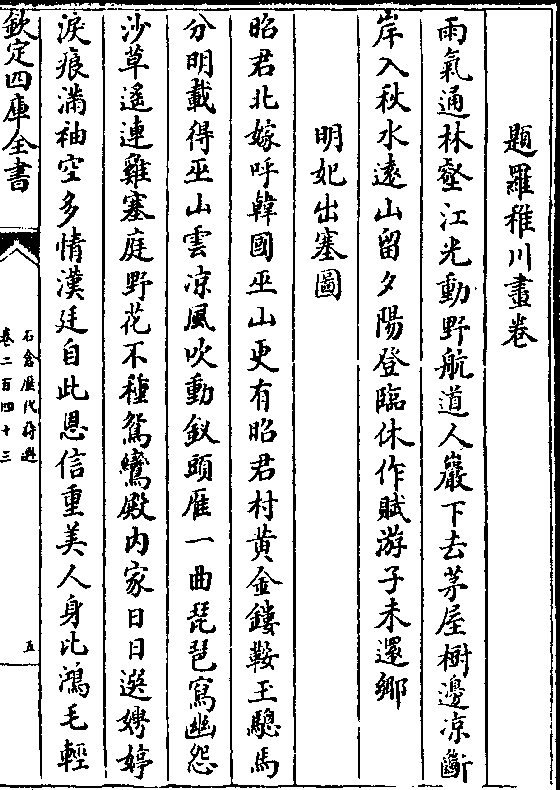 題羅稚川畫卷
雨氣通林壑江光動野航道人巖下去茅屋樹邊凉斷
岸入秋水遠山留夕陽登臨休作賦游子未還鄉
明妃出塞圖
昭君北嫁呼韓國巫山更有昭君村黄金鏤鞍玉驄馬
分明載得巫山雲凉風吹動釵頭雁一曲琵琶寫幽怨
沙草遥連雞塞庭野花不種鴛鸞殿内家日日選娉婷
淚痕滿袖空多情漢廷自此恩信重美人身比鴻毛輕
欽定四庫全書
石倉歷代詩選
卷二百四十三
五